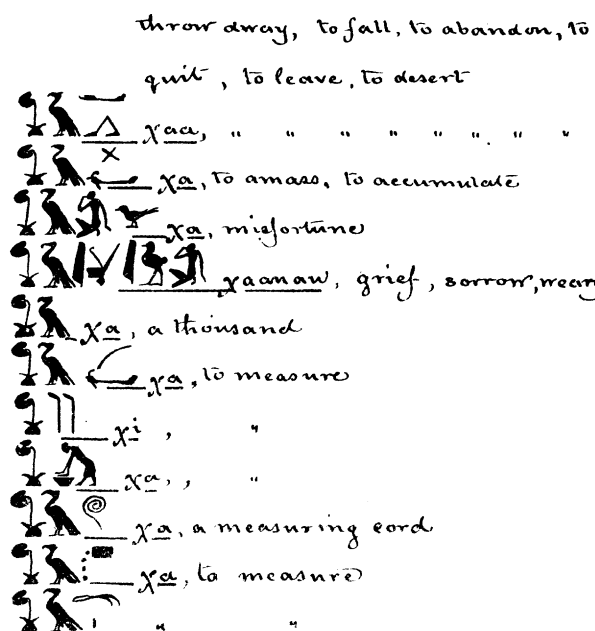 throw away, to fall, to abandon, to
quit, to leave, to desert
𓆼𓄿𓂝𓂻 χaa, " " " " " " " "
𓆼𓄿𓏴𓂡 χa, to amass, to accumulate
𓆼𓄿𓀁𓅪 χa, misfortune
χaanaw, grief, sorrow, weary
𓆼𓄿 χa, a thousand
𓆼𓄿 χa, to measure
𓆼𓇌 χi, "
𓆼 χa, , "
𓆼𓄿𓍢 χa, a measuring cord
𓆼𓄿 χa, to measure
𓆼𓄿 " "